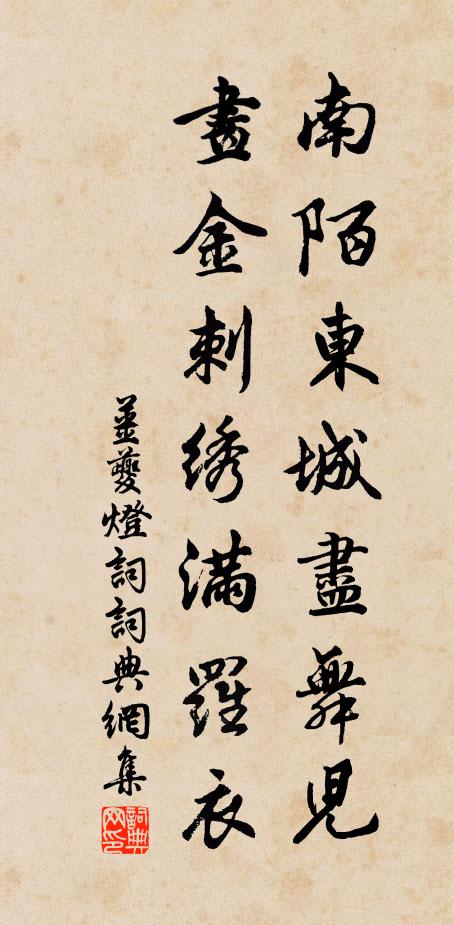 南陌東城盡舞兒
畫金刺綉滿羅衣
姜夔燈詞詞典網集
詞典网印